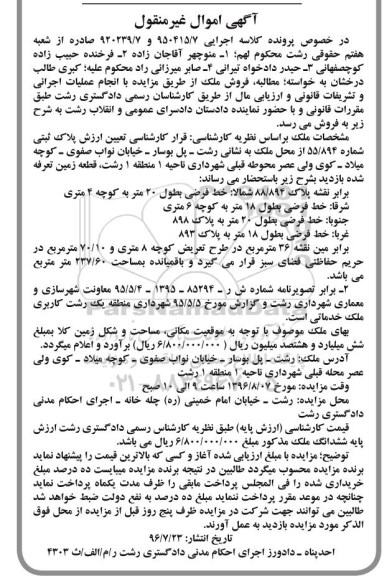 آگهی اموال غیرمنقول
در خصوص پرونده کلاسه اجرایی ۹۵۰۴۱۵/۷ و ۹۲۰۲۳۹/۷ صادره از شعبه
هفتم حقوقی رشت محکوم لهم: ۱ـ منوچهر آقاجان زاده ۲ـ فرخنده حبیب زاده
کوچصفهانی ۳ـ حیدر دادخواه تیرانی ۴ـ صابر میرزائی راد محکوم علیه: کبری طالب
درخشان به خواسته: مطالبه، فروش ملک از طریق مزایده با انجام عملیات اجرائی
و تشریفات قانونی و ارزیابی مال از طریق کارشناسان رسمی دادگستری رشت طبق
مقررات قانونی و با حضور نماینده دادستان دادسرای عمومی و انقلاب رشت به شرح
زیر به فروش می رسد.
مشخصات ملک براساس نظریه کارشناسی: قرار کارشناسی تعیین ارزش پلاک ثبتی
شماره ۵۵/۸۹۴ از محل ملک به نشانی رشت ـ پل بوسار ـ خیابان نواب صفوی ـ کوچه
میلاد ـ کوی ولی عصر محوطه قبلی شهرداری ناحیه ۱ منطقه ۱ رشت، قطعه زمین تعرفه
شده بازدید بشرح زیر باستحضار می رساند:
برابر نقشه پلاک ۸۸/۸۹۴ شمالا: خط فرضی بطول ۲۰ متر به کوچه ۴ متری
شرقا: خط فرضی بطول ۱۸ متر به کوچه ۶ متری
جنوبا: خط فرضی بطول ۲۰ متر به پلاک ۸۹۸
غربا: خط فرضی بطول ۱۸ متر به پلاک ۸۹۳
برابر مین نقشه ۳۶ مترمربع در طرح تعریض کوچه ۸ متری و ۷۰/۱۰ مترمربع در
حریم حفاظتی فضای سبز قرار می گیرد و باقمیانده بمساحت ۲۳۷/۶۰ متر مربع
می باشد.
۲ـ برابر تصویرنامه شماره ش ر ـ ۸۵۲۹۴ ـ ۱۳۹۵ ـ ۹۵/۵/۴ معاونت شهرسازی و
معماری شهرداری رشت و گزارش مورخ ۹۵/۵/۵ شهرداری منطقه یک رشت کاربری
ملک خدماتی است.
بهای ملک موصوف با توجه به موقعیت مکانی، مساحت و شکل زمین کلا بمبلغ
شش میلیارد و هشتصد میلیون ریال (۶/۸۰۰/۰۰۰/۰۰۰ ریال) برآورد و اعلام میگردد.
آدرس ملک: رشت ـ پل بوسار ـ خیابان نواب صفوی ـ کوچه میلاد ـ کوی ولی
عصر محله قبلی شهرداری ناحیه ۱ منطقه ۱ رشت
وقت مزایده: مورخ ۱۳۹۶/۸/۰۷ ساعت ۹ الی ۱۰ صبح
محل مزایده: رشت ـ خیابان امام خمینی (ره) چله خانه ـ اجرای احکام مدنی
دادگستری رشت
قیمت کارشناسی (ارزش پایه) طبق نظریه کارشناس رسمی دادگستری رشت ارزش
پایه ششدانگ ملک مذکور مبلغ ۶/۸۰۰/۰۰۰/۰۰۰ ریال می باشد.
توضیح: مزایده با مبلغ ارزیابی شده آغاز و کسی که بالاترین قیمت را پیشنهاد نماید
برنده مزایده محسوب میگردد طالبین در نتیجه برنده مزایده میبایست ده درصد مبلغ
خریداری شده را فی المجلس پرداخت مابقی را ظرف مدت یکماه پرداخت نماید
چنانچه در موعد مقرر پرداخت ننماید مبلغ ده درصد به نفع دولت ضبط خواهد شد
طالبین می توانند جهت شرکت در مزایده ظرف پنج روز قبل از مزایده از محل فوق
الذکر مورد مزایده بازدید به عمل آورند.
تاریخ انتشار: ۹۶/۷/۲۳
احدپناه ـ دادورز اجرای احکام مدنی دادگستری رشت ر/م/الف/ث ۴۳۰۳